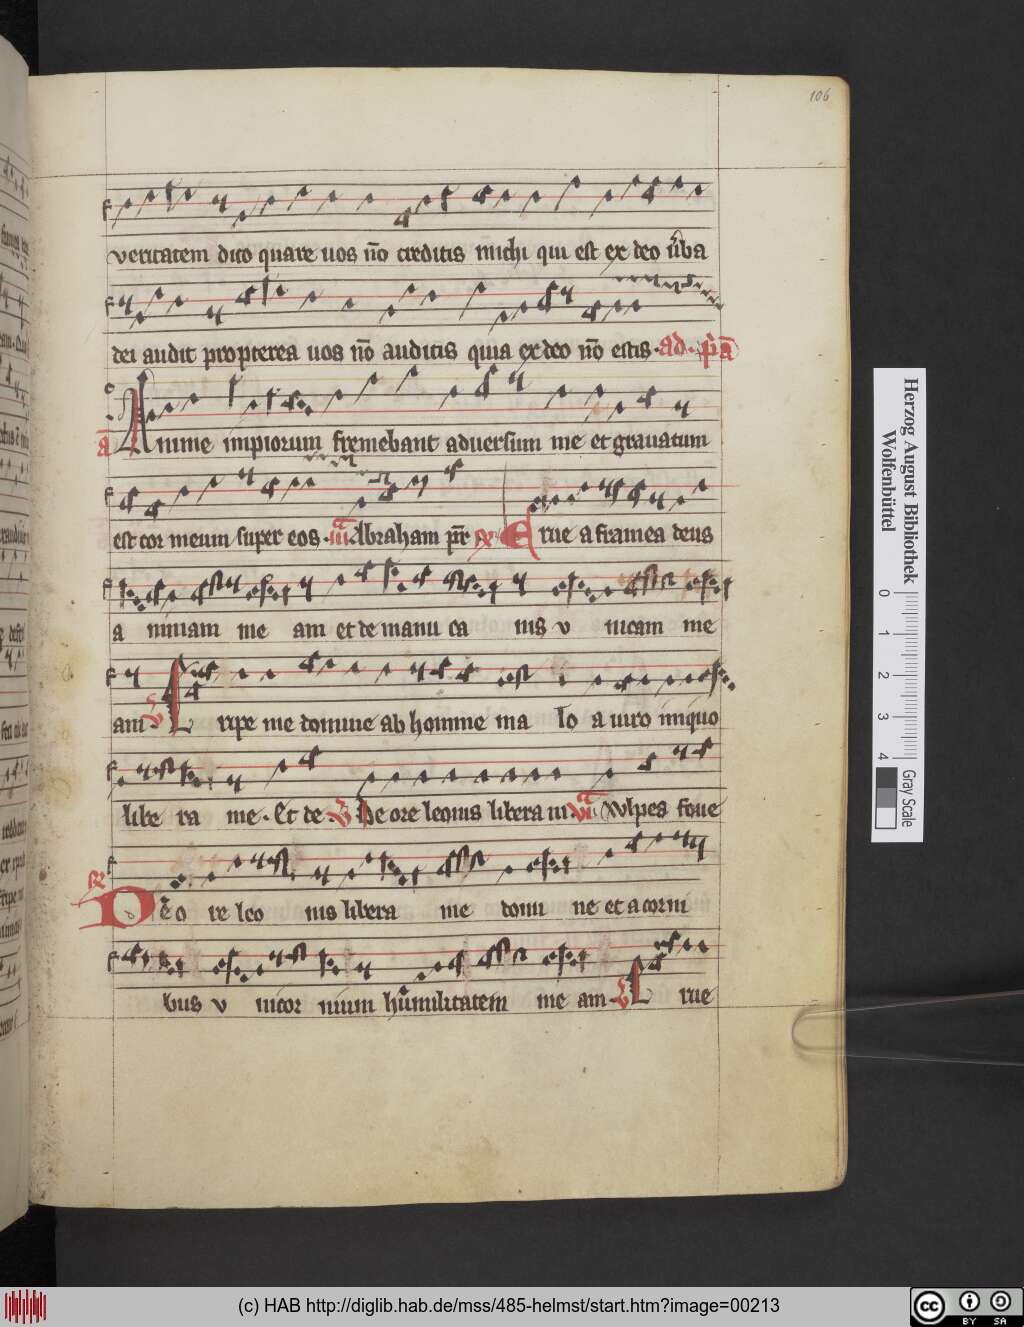 106
veritatem dico quare uos no̅ creditis michi qui est ex deo u̅ba
dei audit propterea uos no̅ auditis quia ex deo no̅ estis. ad. p̅a̅
a̅ Anime impiorum fremebant aduersum me et grauatum
est cor meum super eos. Abraham pr̅ Erue a framea deus
a nimam me am et de manu ca nis v nicam me
am Eripe me domine ab homine ma lo a uiro iniquo
libe ra me. Et de De ore leonis libera m uulpes foue
De o re leo nis libera me domi ne et a corni
bus v nicor nium humilitatem me am Erue
Herzog August Bibliothek
Wolfenbüttel
0 1 2 3 4
Gray Scale
(c) HAB http://diglib.hab.de/mss/485-helmst/start.htm?image=00213
cc BY SA